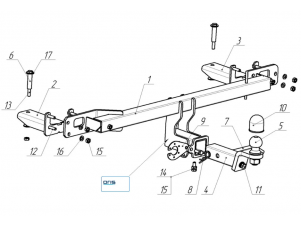 6
17
3
2
1
13
10
7
5
12
16
15
9
14
15
8
4
11